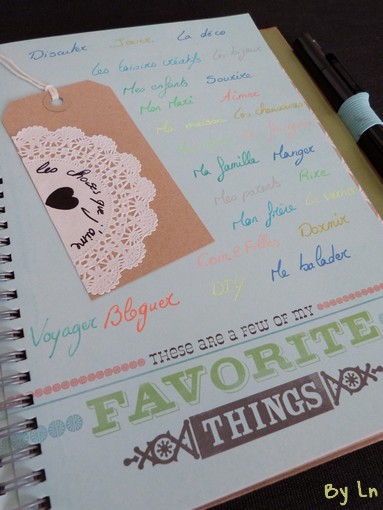 Discuter Jouer La déco
Les loisirs créatifs Les bijoux
Mes enfants Sourire
Mon Mari Aimer
Ma maison Les chaussures
Ma famille Manger
Mes parents Rire
Mon frère
Dormir
Copines Filles
Me balader
DIY
Voyager Bloguer
les choses que j'aime
THESE ARE A FEW OF MY
FAVORITE
THINGS
By Ln